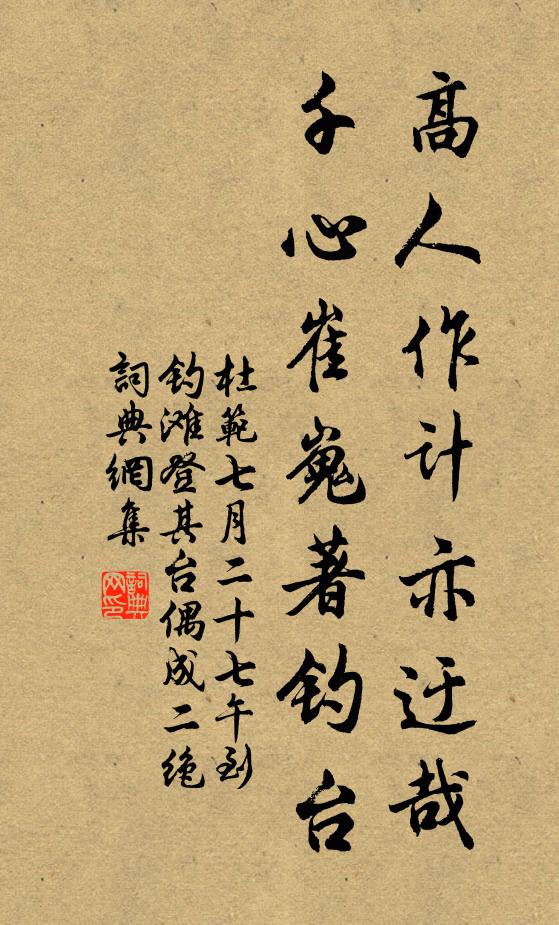 高人作计亦迂哉
千心崔嵬著钓台
杜範七月二十七午到
钓滩登其台偶成二绝
詞典網集
詞典网印